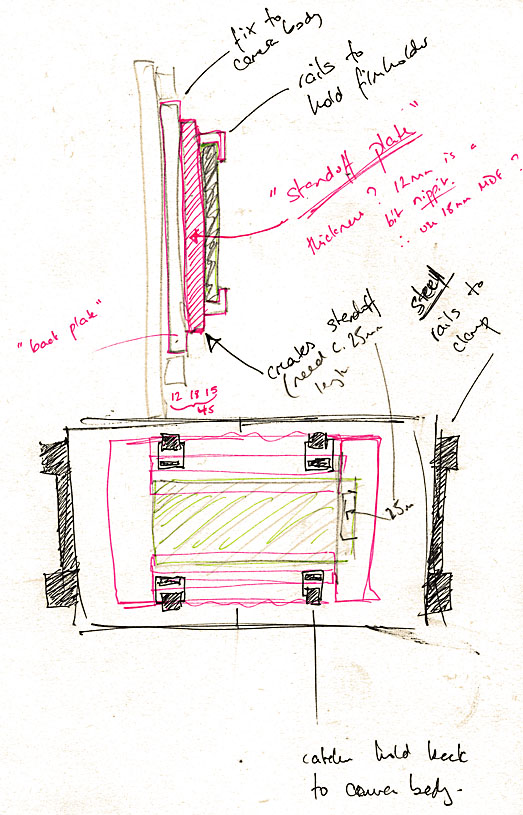 fix to
camera body
rails to
hold filmholder
"standoff plate"
thickness ? 12mm is a
bit nippit.
∴ use 18mm MDF ?
"back plate"
creates standoff
(need c. 25mm
steel
rails to
clamp
12 18 15
45
25m
catches hold back
to camera body.